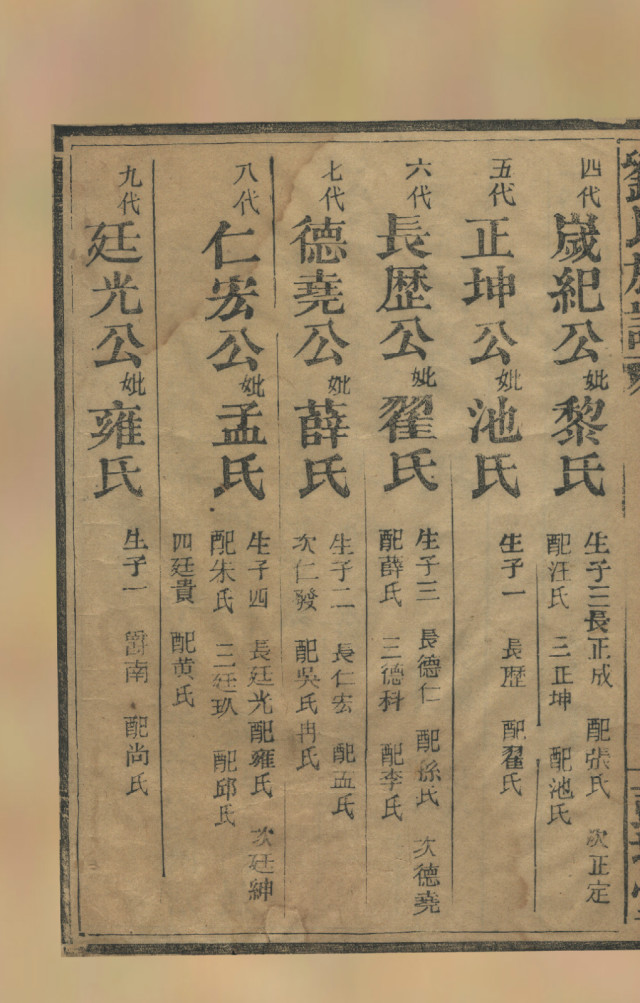 四代
歲紀公妣黎氏
生子三長正成 配張氏 次正定
配汪氏 三正坤 配池氏
五代
正坤公妣池氏
生子一 長歷 配翟氏
六代
長歷公妣翟氏
生子三 長德仁 配孫氏 次德堯
配薛氏 三德科 配李氏
七代
德堯公妣薛氏
生子二 長仁宏 配孟氏
次仁發 配吳氏冉氏
八代
仁宏公妣孟氏
生子四 長廷光配雍氏 次廷紳
配朱氏 三廷玖 配邱氏
四廷貴 配黃氏
九代
廷光公妣雍氏
生子一 爵南 配尚氏